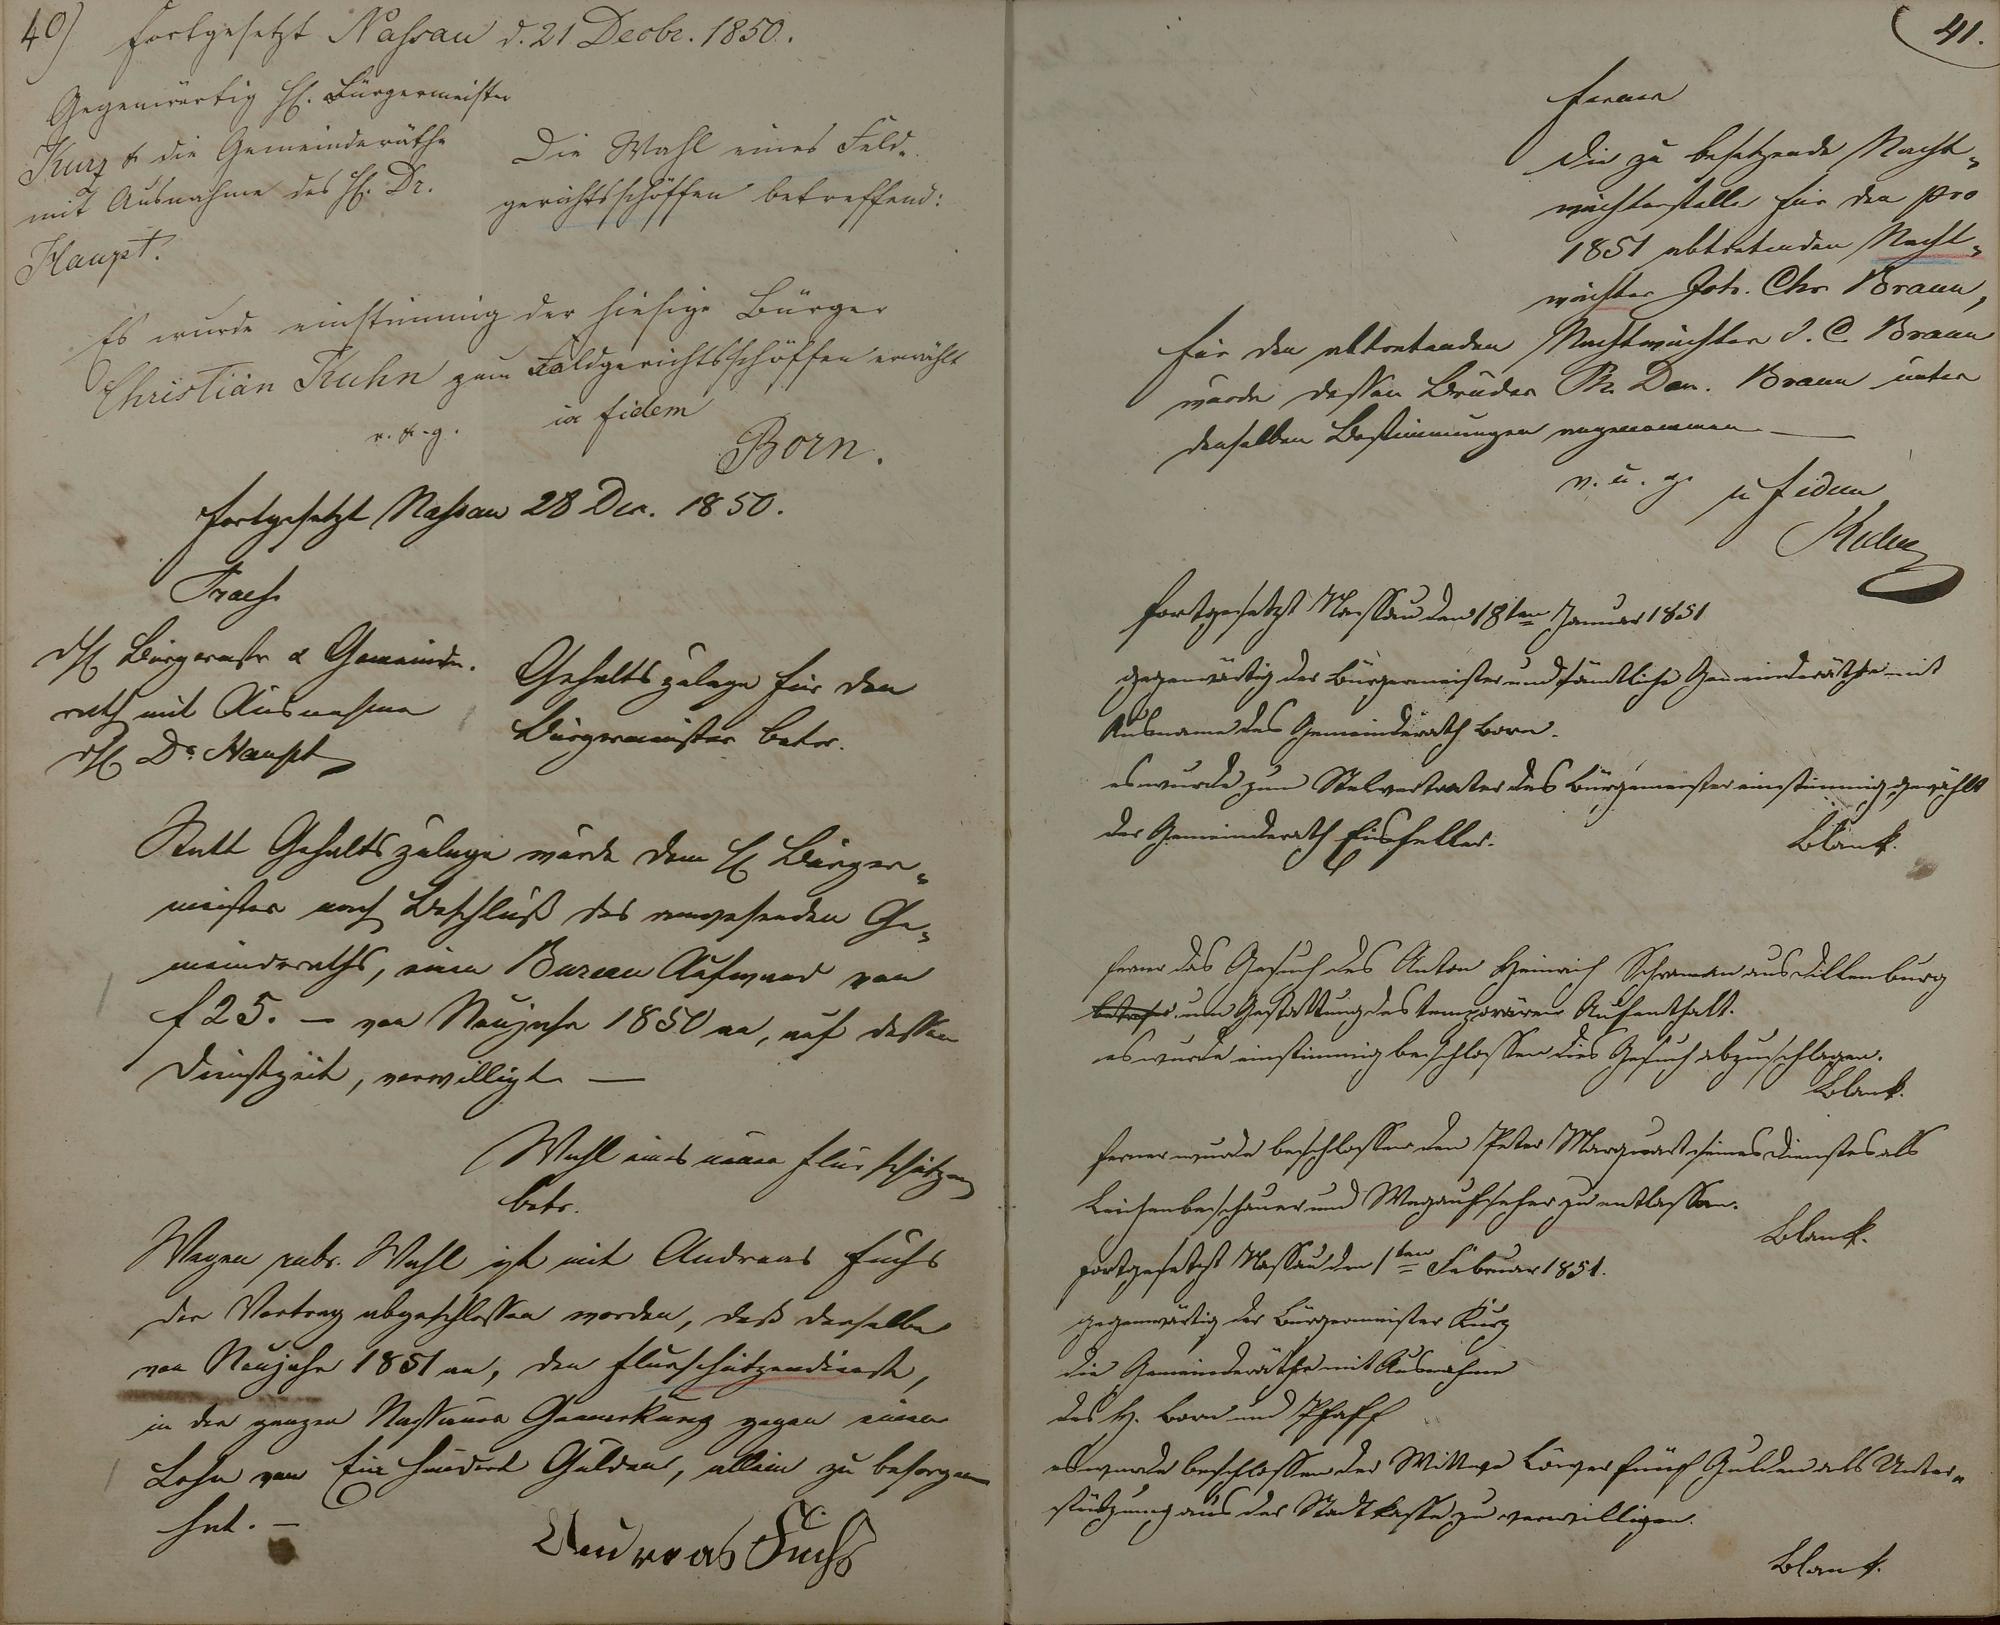 40)
fortgesetzt Nassau d. 21 Decbr. 1850.
Gegenwärtig H. Bürgermeister
Kurz & die Gemeinderäthe
mit Ausnahme des H. Dr.
Haupt.
Die Wahl eines Feld-
gerichtsschöffen betreffend:
Es wurde einstimmig der hiesige Bürger
Christian Kuhn zum Feldgerichtsschöffen erwählt
v. & g. in fidem
Born.
fortgesetzt Nassau 28 Dec. 1850.
Praes.
H. Bürgermstr & Gemeinde-
rath mit Ausnahme
H Dr Haupt
Gehaltszulage für den
Bürgermeister betr.
Statt Gehaltszulage wurde dem H Bürger-
meister nach Beschluß des anwesenden Ge-
meinderaths, einen Bureau Aufwand von
f 25. — von Neujahr 1850 an, auf dessen
Dienstzeit, verwilligt. —
Wahl eines neuen Flurschützen
betr.
Wegen rubr. Wahl ist mit Andreas Fuchs
der Vertrag abgeschlossen worden, daß derselbe
von Neujahr 1851 an, den Flurschützendienst,
in der ganzen Nassauer Gemarkung gegen einen
Lohn von Ein hundert Gulden, allein zu besorgen
hat. —
Andreas Fuchs
41.
ferner
Die zu besetzende Nacht-
wächterstelle für den pro
1851 abtretenden Nacht-
wächter Joh. Chr Braun,
für den abtretenden Nachtwächter J. C. Braun
wurde dessen Bruder Ph. Dan. Braun unter
denselben Bestimmungen angenommen. —
v. u. g. in fidem
fortgesetzt Nassau den 18ten Januar 1851
gegenwärtig der Bürgermeister und sämtliche Gemeinderäthe mit
Ausname des Gemeinderath Born.
es wurde zum Stelvertreter des Bürgermeister einstimmig gewählt
der Gemeinderath Eisfeller.
Blank.
ferner das Gesuch des Anton Heinrich Schramm aus Dillenburg
um Gestattung des temporären Aufenthalt.
es wurde einstimmig beschlossen dies Gesuch abzuschlagen.
Blank.
ferner wurde beschlossen den Peter Marquart seines Dienstes als
Leichenbeschauer und Wegaufseher zu entlassen.
Blank.
fortgesetzt Nassau den 1ten Februar 1851.
gegenwärtig der Bürgermeister Kurz
die Gemeinderäthe mit Ausnahme
des H. Born und Pfaff
es wurde beschlossen der Wittwe Löwer fünf Gulden als Unter-
stützung aus der Stadtkasse zu verwilligen.
Blank.